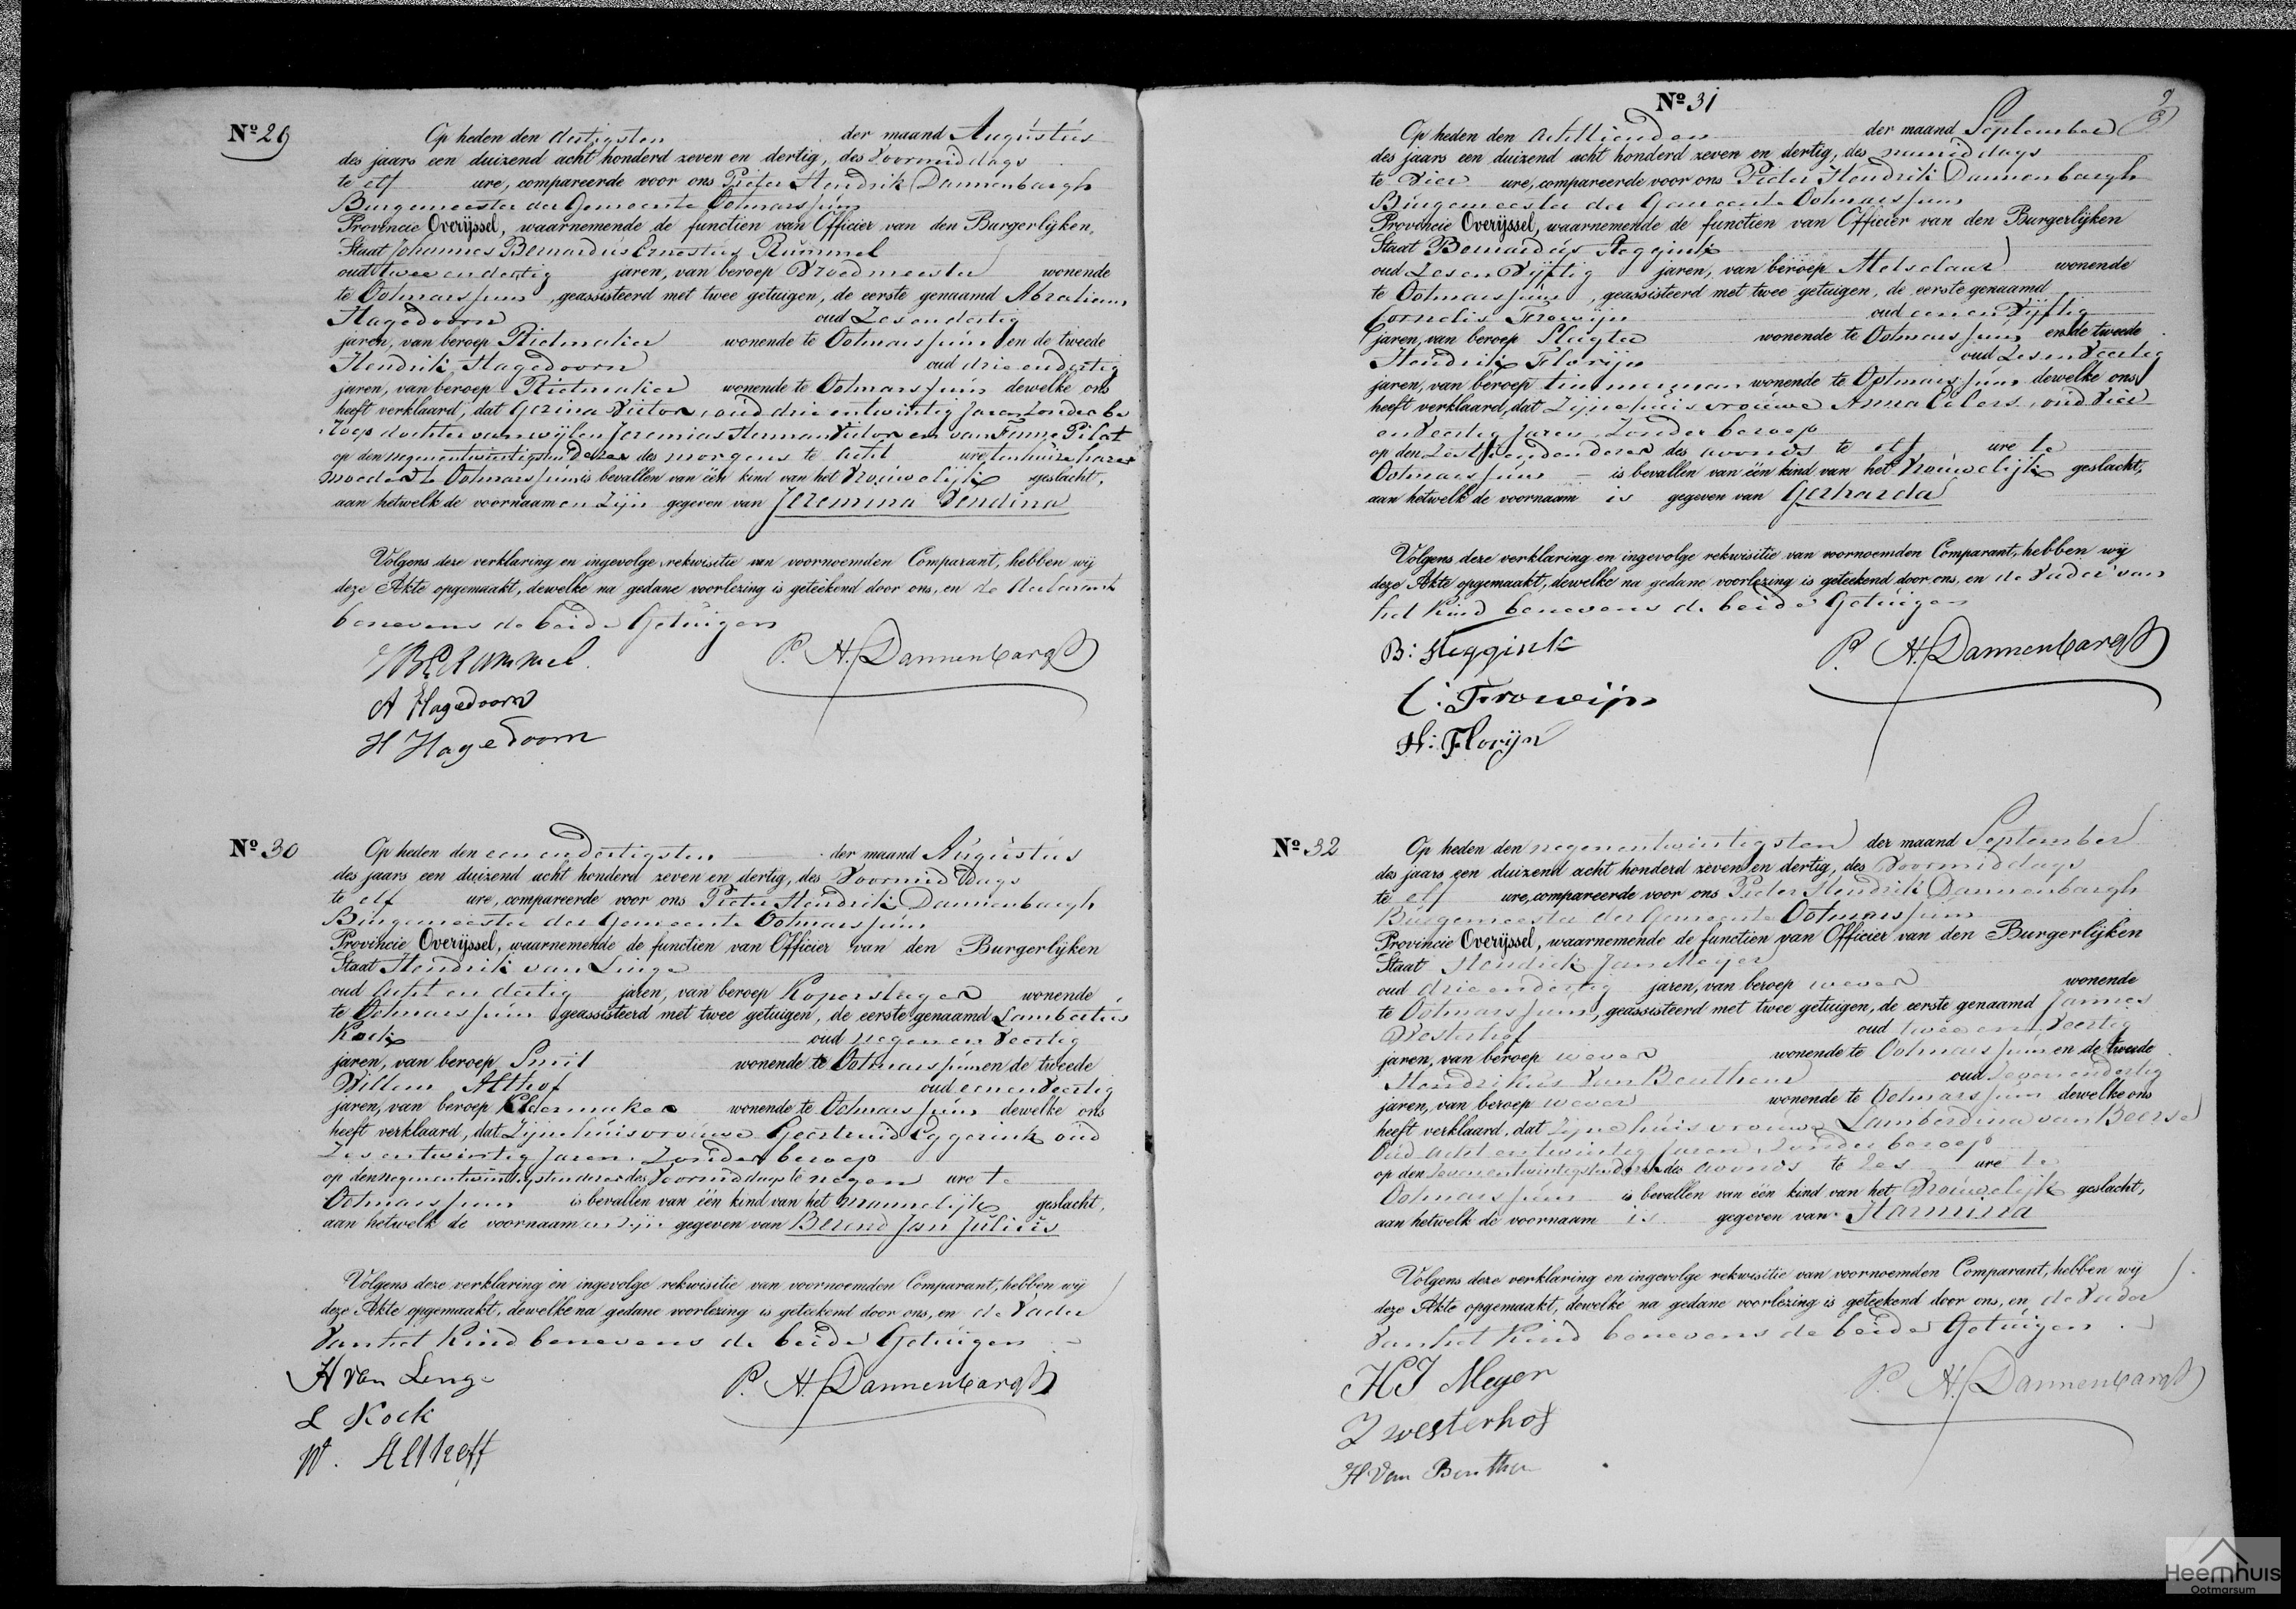 Nº 29
Op heden den dertigsten der maand Augústús
des jaars een duizend acht honderd zeven en dertig, des Voormiddags
te elf ure, compareerde voor ons Pieter Hendrik Dannenbargh
Búrgemeester der Gemeente Ootmarssúm
Provincie Overijssel, waarnemende de functien van Officier van den Burgerlijken
Staat Johannes Bernardús Ernestús Rúmmel
oud twee en dertig jaren, van beroep Vroedmeester wonende
te Ootmarssúm, geassisteerd met twee getuigen, de eerste genaamd Abraham
Hagedoorn oud Zes en dertig
jaren, van beroep Rietmaker wonende te Ootmarssúm en de tweede
Hendrik Hagedoorn oud drie en dertig
jaren, van beroep Rietmaker wonende te Ootmarssúm dewelke ons
heeft verklaard, dat Gezina Victor, oud drie entwintig jaren Zonder be
roep dochter van wijlen Jeremias Herman Victor en van Fenne Pilat
op den negenentwintigsten dezer des morgens te acht ure, tenhuize harer
moeder te Ootmarssúm is bevallen van één kind van het Vroúwelijk geslacht,
aan hetwelk de voornaamen Zijn gegeven van Jeremina Dendina
Volgens deze verklaring en ingevolge rekwisitie van voornoemden Comparant, hebben wij
deze Akte opgemaakt, dewelke na gedane voorlezing is geteekend door ons, en de declarant
benevens de beide Getúigen
JBERummel P. H. Dannenbargh
A Hagedoorn
H Hagedoorn
Nº 30
Op heden den een endertigsten der maand Aúgústús
des jaars een duizend acht honderd zeven en dertig, des Voormiddags
te elf ure, compareerde voor ons Pieter Hendrik Dannenbargh
Búrgemeester der Gemeente Ootmarssúm
Provincie Overijssel, waarnemende de functien van Officier van den Burgerlijken
Staat Hendrik van Linge
oud acht en dertig jaren, van beroep Koperslager wonende
te Ootmarssúm geassisteerd met twee getuigen, de eerste genaamd Lambertús
Kock oud negen en Veertig
jaren, van beroep Smit wonende te Ootmarssúm en de tweede
Willem Althof oud een en Veertig
jaren, van beroep Kleermaker wonende te Ootmarssúm dewelke ons
heeft verklaard, dat Zijne húisvroúwe Geertruid Eggerink oud
Zes entwintig Jaren, Zonder beroep
op den negenentwintigsten dezer des Voormiddags te negen ure te
Ootmarssum is bevallen van één kind van het mannelijk geslacht,
aan hetwelk de voornaamen zijn gegeven van Berend Jan Júliús
Volgens deze verklaring en ingevolge rekwisitie van voornoemden Comparant, hebben wij
deze Akte opgemaakt, dewelke na gedane voorlezing is geteekend door ons, en de Vader
Van het Kind benevens de beide Getúigen
H van Linge P. H. Dannenbargh
L Kock
W. Althoff
Nº 31
Op heden den achttienden der maand September
des jaars een duizend acht honderd zeven en dertig, des namiddags
te Vier ure, compareerde voor ons Pieter Hendrik Dannenbargh
Búrgemeester der Gemeente Ootmarssúm
Provincie Overijssel, waarnemende de functien van Officier van den Burgerlijken
Staat Bernardús Heggink
oud Zes en Vijftig jaren, van beroep Metselaar wonende
te Ootmarssúm, geassisteerd met twee getuigen, de eerste genaamd
Cornelis Frowijn oud een en Vijftig
jaren, van beroep Slagter wonende te Ootmarssúm en de tweede
Hendrik Florijn oud Zes en Veertig
jaren, van beroep timmerman wonende te Ootmarssúm dewelke ons
heeft verklaard, dat Zijne húisvroúwe Anna Eilers, oud Vier
en Veertig Jaren, Zonder beroep
op den Zestienden dezer des avonds te elf ure te
Ootmarssúm is bevallen van één kind van het Vroúwelijk geslacht,
aan hetwelk de voornaam is gegeven van Gerharda
Volgens deze verklaring en ingevolge rekwisitie van voornoemden Comparant, hebben wij
deze Akte opgemaakt, dewelke na gedane voorlezing is geteekend door ons, en de Vader van
het Kind benevens de beide Getúigen
B: Heggink P. H. Dannenbargh
C: Frowijn
H: Florijn
Nº 32
Op heden den negenentwintigsten der maand September
des jaars een duizend acht honderd zeven en dertig, des Voormiddags
te elf ure, compareerde voor ons Pieter Hendrik Dannenbargh
Búrgemeester der Gemeente Ootmarssúm
Provincie Overijssel, waarnemende de functien van Officier van den Burgerlijken
Staat Hendrik Jan Meijer
oud drie en dertig jaren, van beroep wever wonende
te Ootmarssum, geassisteerd met twee getuigen, de eerste genaamd Jannes
Westerhof oud twee en Veertig
jaren, van beroep wever wonende te Ootmarssúm en de tweede
Hendrikus van Benthem oud Zeven en dertig
jaren, van beroep wever wonende te Ootmarssum dewelke ons
heeft verklaard, dat Zijne húisvroúwe Lamberdina van Beerse
Oud acht entwintig Jaren, Zonder beroep
op den Zevenentwintigsten dezer des avonds te Zes ure te
Ootmarssúm is bevallen van één kind van het Vroúwelijk geslacht,
aan hetwelk de voornaam is gegeven van Harmina
Volgens deze verklaring en ingevolge rekwisitie van voornoemden Comparant, hebben wij
deze Akte opgemaakt, dewelke na gedane voorlezing is geteekend door ons, en de Vader
Van het Kind benevens de beide Getúigen
HJ Meyer P. H. Dannenbargh
J westerhof
H. Van Benthem
Heemhuis
Ootmarsum